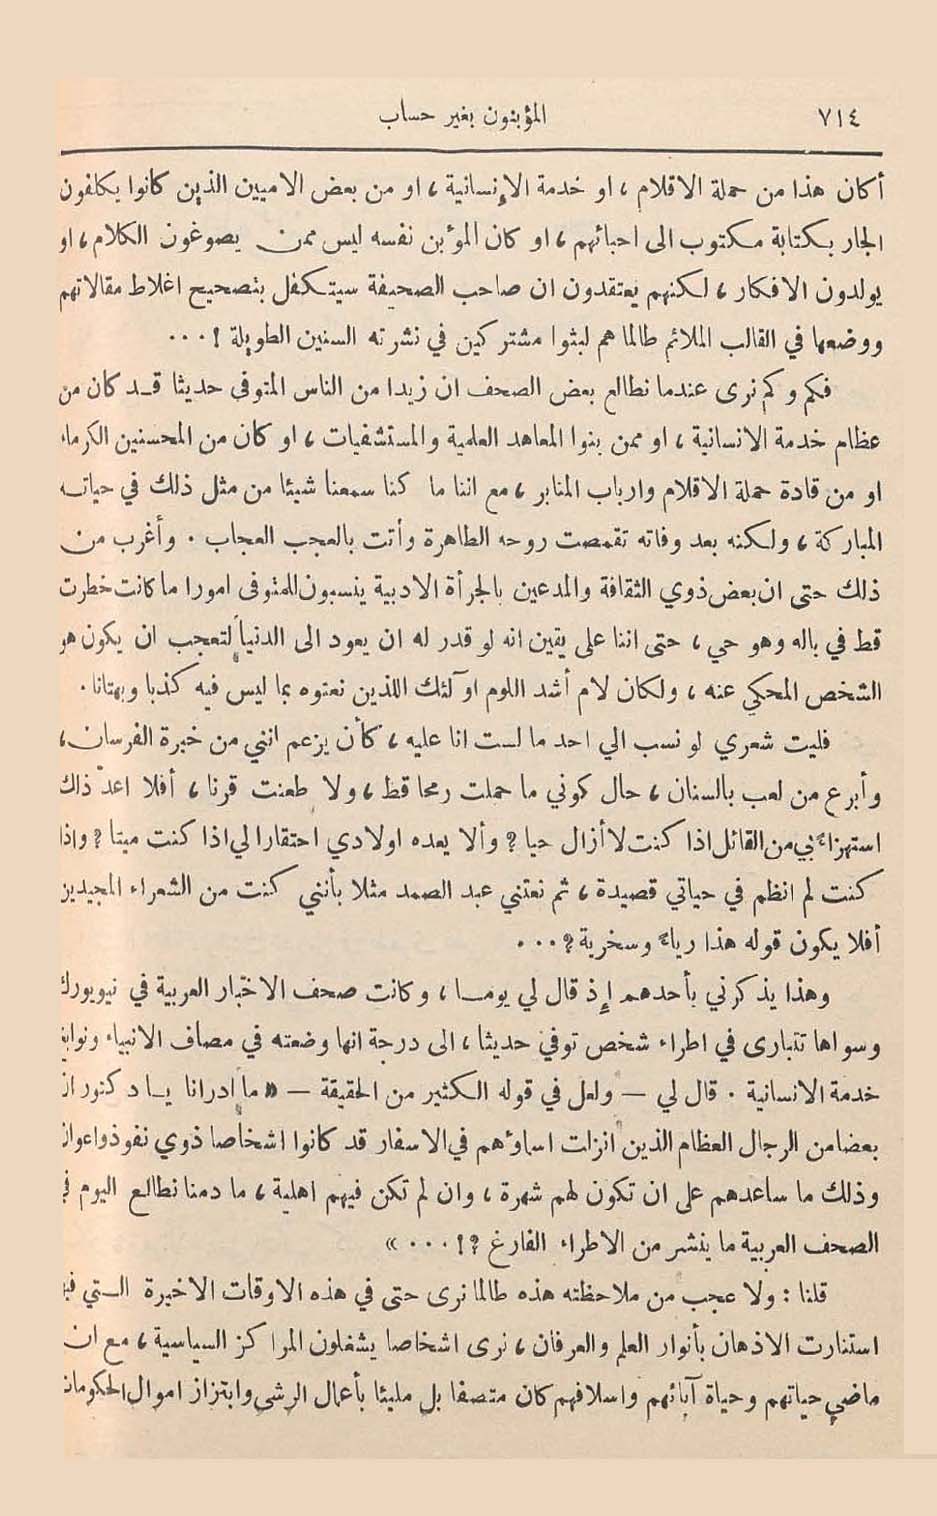 ٧١٤
المؤبنون بغير حساب
أكان هذا من حملة الاقلام ، او خدمة الإنسانية ، او من بعض الاميين الذين كانوا يكلفون
الجار بكتابة مكتوب الى احبائهم ، او كان المؤبن نفسه ليس ممن يصوغون الكلام ، او
يولدون الافكار ، لكنهم يعتقدون ان صاحب الصحيفة سيتكفل بتصحيح اغلاط مقالاتهم
ووضعها في القالب الملائم طالما هم لبثوا مشتركين في نشرته السنين الطويلة ! . . .
فكم وكم نرى عندما نطالع بعض الصحف ان زيدا من الناس المتوفي حديثا قد كان من
عظام خدمة الانسانية ، او ممن بنوا المعاهد العلمية والمستشفيات ، او كان من المحسنين الكرماء
او من قادة حملة الاقلام وارباب المنابر ، مع اننا ما كنا سمعنا شيئا من مثل ذلك في حياته
المباركة ، ولكنه بعد وفاته تقمصت روحه الطاهرة وأتت بالعجب العجاب . وأغرب من
ذلك حتى ان بعض ذوي الثقافة والمدعين بالجرأة الادبية ينسبون للمتوفى امورا ما كانت خطرت
قط في باله وهو حي ، حتى اننا على يقين انه لو قدر له ان يعود الى الدنيا لتعجب ان يكون هو
الشخص المحكي عنه ، ولكان لام أشد اللوم اولئك اللذين نعتوه بما ليس فيه كذبا وبهتانا .
فليت شعري لو نسب الي احد ما لست انا عليه ، كأن يزعم انني من خبرة الفرسان ،
وأبرع من لعب بالسنان ، حال كوني ما حملت رمحا قط ، ولا طعنت قرنا ، أفلا اعدّ ذاك
استهزاءً بي من القائل اذا كنت لا أزال حيا ؟ وألا يعده اولادي احتقارا لي اذا كنت ميتا ؟ واذا
كنت لم انظم في حياتي قصيدة ، ثم نعتني عبد الصمد مثلا بأنني كنت من الشعراء المجيدين
أفلا يكون قوله هذا رياءً وسخرية ؟ . . .
وهذا يذكرني بأحدهم إذ قال لي يوما ، وكانت صحف الاخبار العربية في نيويورك
وسواها تتبارى في اطراء شخص توفي حديثا ، الى درجة انها وضعته في مصاف الانبياء ونوابغ
خدمة الانسانية . قال لي — ولعل في قوله الكثير من الحقيقة — « ما ادرانا يا دكتور ان
بعضا من الرجال العظام الذين انزلت اساؤهم في الاسفار قد كانوا اشخاصا ذوي نفوذ واعوان
وذلك ما ساعدهم على ان تكون لهم شهرة ، وان لم تكن فيهم اهلية ، ما دمنا نطالع اليوم في
الصحف العربية ما ينشر من الاطراء الفارغ ؟ ! . . . »
قلنا : ولا عجب من ملاحظته هذه طالما نرى حتى في هذه الاوقات الاخيرة التي فيها
استنارت الاذهان بأنوار العلم والعرفان ، نرى اشخاصا يشغلون المراكز السياسية ، مع ان
ماضي حياتهم وحياة آبائهم واسلافهم كان متصفا بل مليئا بأعمال الرشي وابتزاز اموال الحكومات